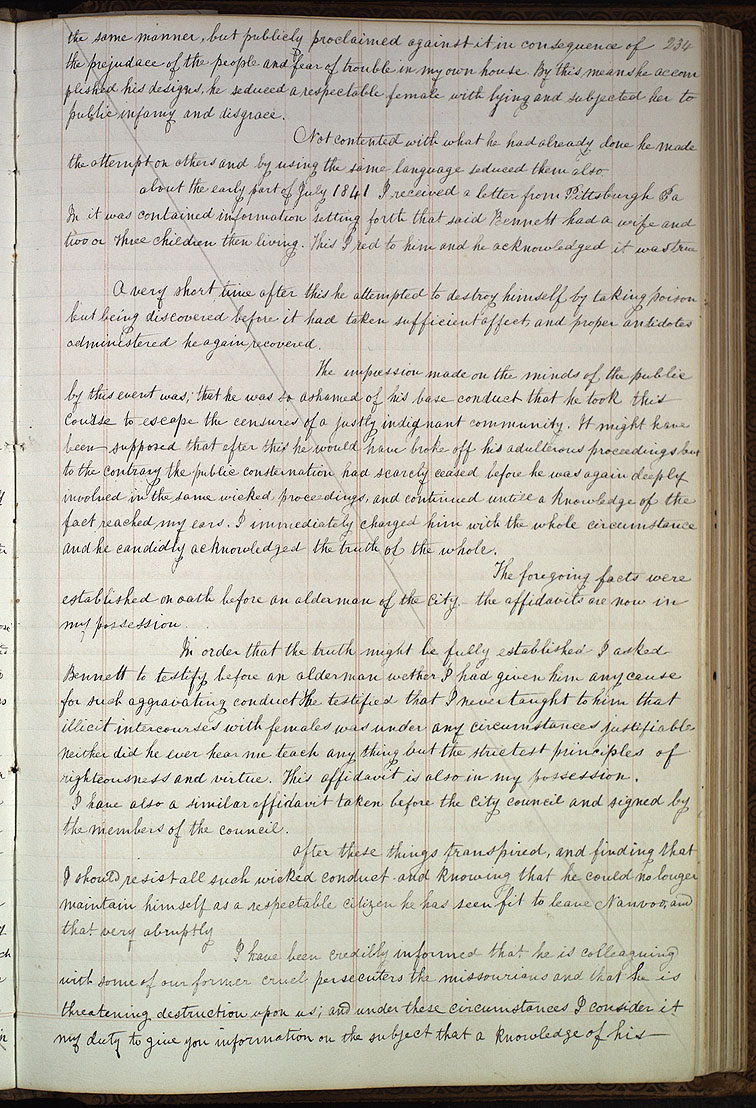 the same manner, but publicly proclaimed against it in consequence of 234
the prejudace of the people and fear of trouble in my own house. By this means he accom
plished his designs, he seduced a respectable female with lying and subjected her to
public infamy and disgrace.
Not contented with what he had already done he made
the attempt on others and by using the same language seduced them also
about the early part of July 1841 I received a letter from Pittsburgh Pa
In it was contained information setting forth that said Bennett had a wife and
two or three children then living. This I red to him and he acknowledged it was true
A very short time after this he attempted to destroy himself by taking poison
but being discovered before it had taken sufficient affect, and proper antidotes
administered he again recovered.
The impression made on the minds of the public
by this event was; that he was so ashamed of his base conduct that he took this
course to escape the censures of a justly indignant community. It might have
been supposed that after this he would have broke off his adulterous proceedings but
to the contrary the public consternation had scarcly ceased before he was again deeply
involved in the same wicked proceedings, and continued untill a knowledge of the
fact reached my ears. I immediately charged him with the whole circumstance
and he candidly acknowledged the truth of the whole.
The foregoing facts were
established on oath before an alderman of the city - the affidavits are now in
my possession.
In order that the truth might be fully established I asked
Bennett to testify before an alderman wether I had given him any cause
for such aggravating conduct He testified that I never taught to him that
illicit intercourse with females was under any circumstances justifiable
neither did he ever hear me teach any thing but the strictest principles of
righteousness and virtue. This affidavit is also in my possession.
I have also a similar affidavit taken before the city council and signed by
the members of the council.
after these things transpired, and finding that
I should resist all such wicked conduct and knowing that he could no longer
maintain himself as a respectable citizen he has seen fit to leave Nauvoo, and
that very abruptly
I have been credibly informed that he is colleaguing
with some of our former cruel persecuters the missourians and that he is
threatening destruction upon us; and under these circumstances I consider it
my duty to give you information on the subject that a knowledge of his